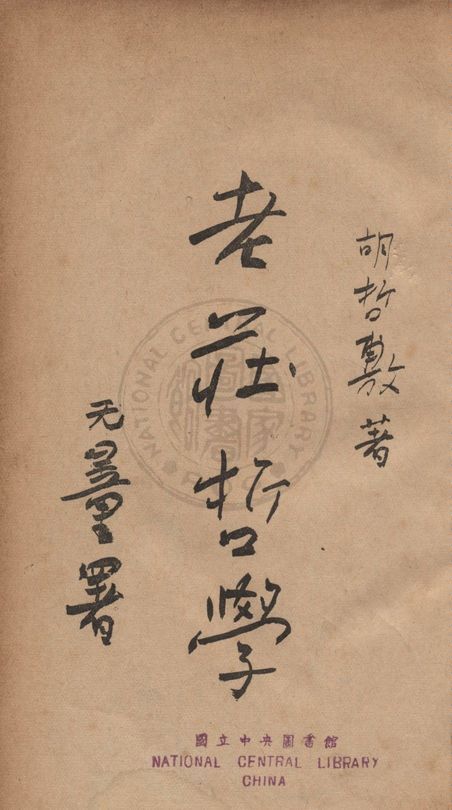 胡哲敷著
老莊哲學
无量署
NATIONAL CENTRAL LIBRARY
國立中央圖書館
NATIONAL CENTRAL LIBRARY
CHINA